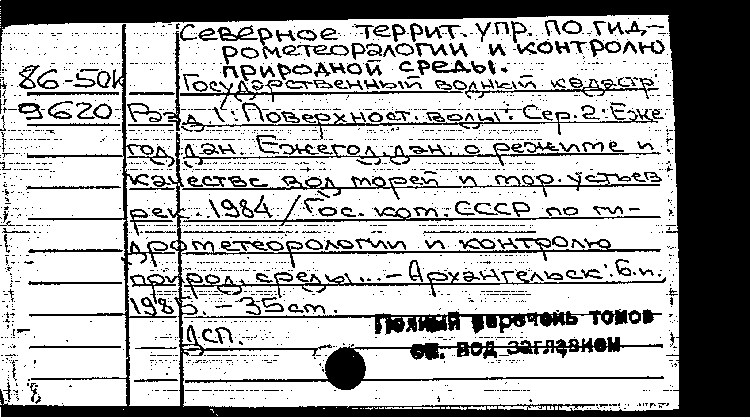 Северное террит. упр. по гид-
рометеоралогии и контролю
природной среды.
86-50к Государственный водный кадастр
9620 Разд. 1: Поверхност. воды: Сер. 2: Еже
год. дан. Ежегод. дан. о режиме и
качестве вод морей и мор. устьев
рек. 1984 / Гос. ком. СССР по ги-
дрометеорологии и контролю
природ. среды... – Архангельск: б.и.
1985. – 35 см.
Дсп.
Полный перечень томов
см. под заглавием
8